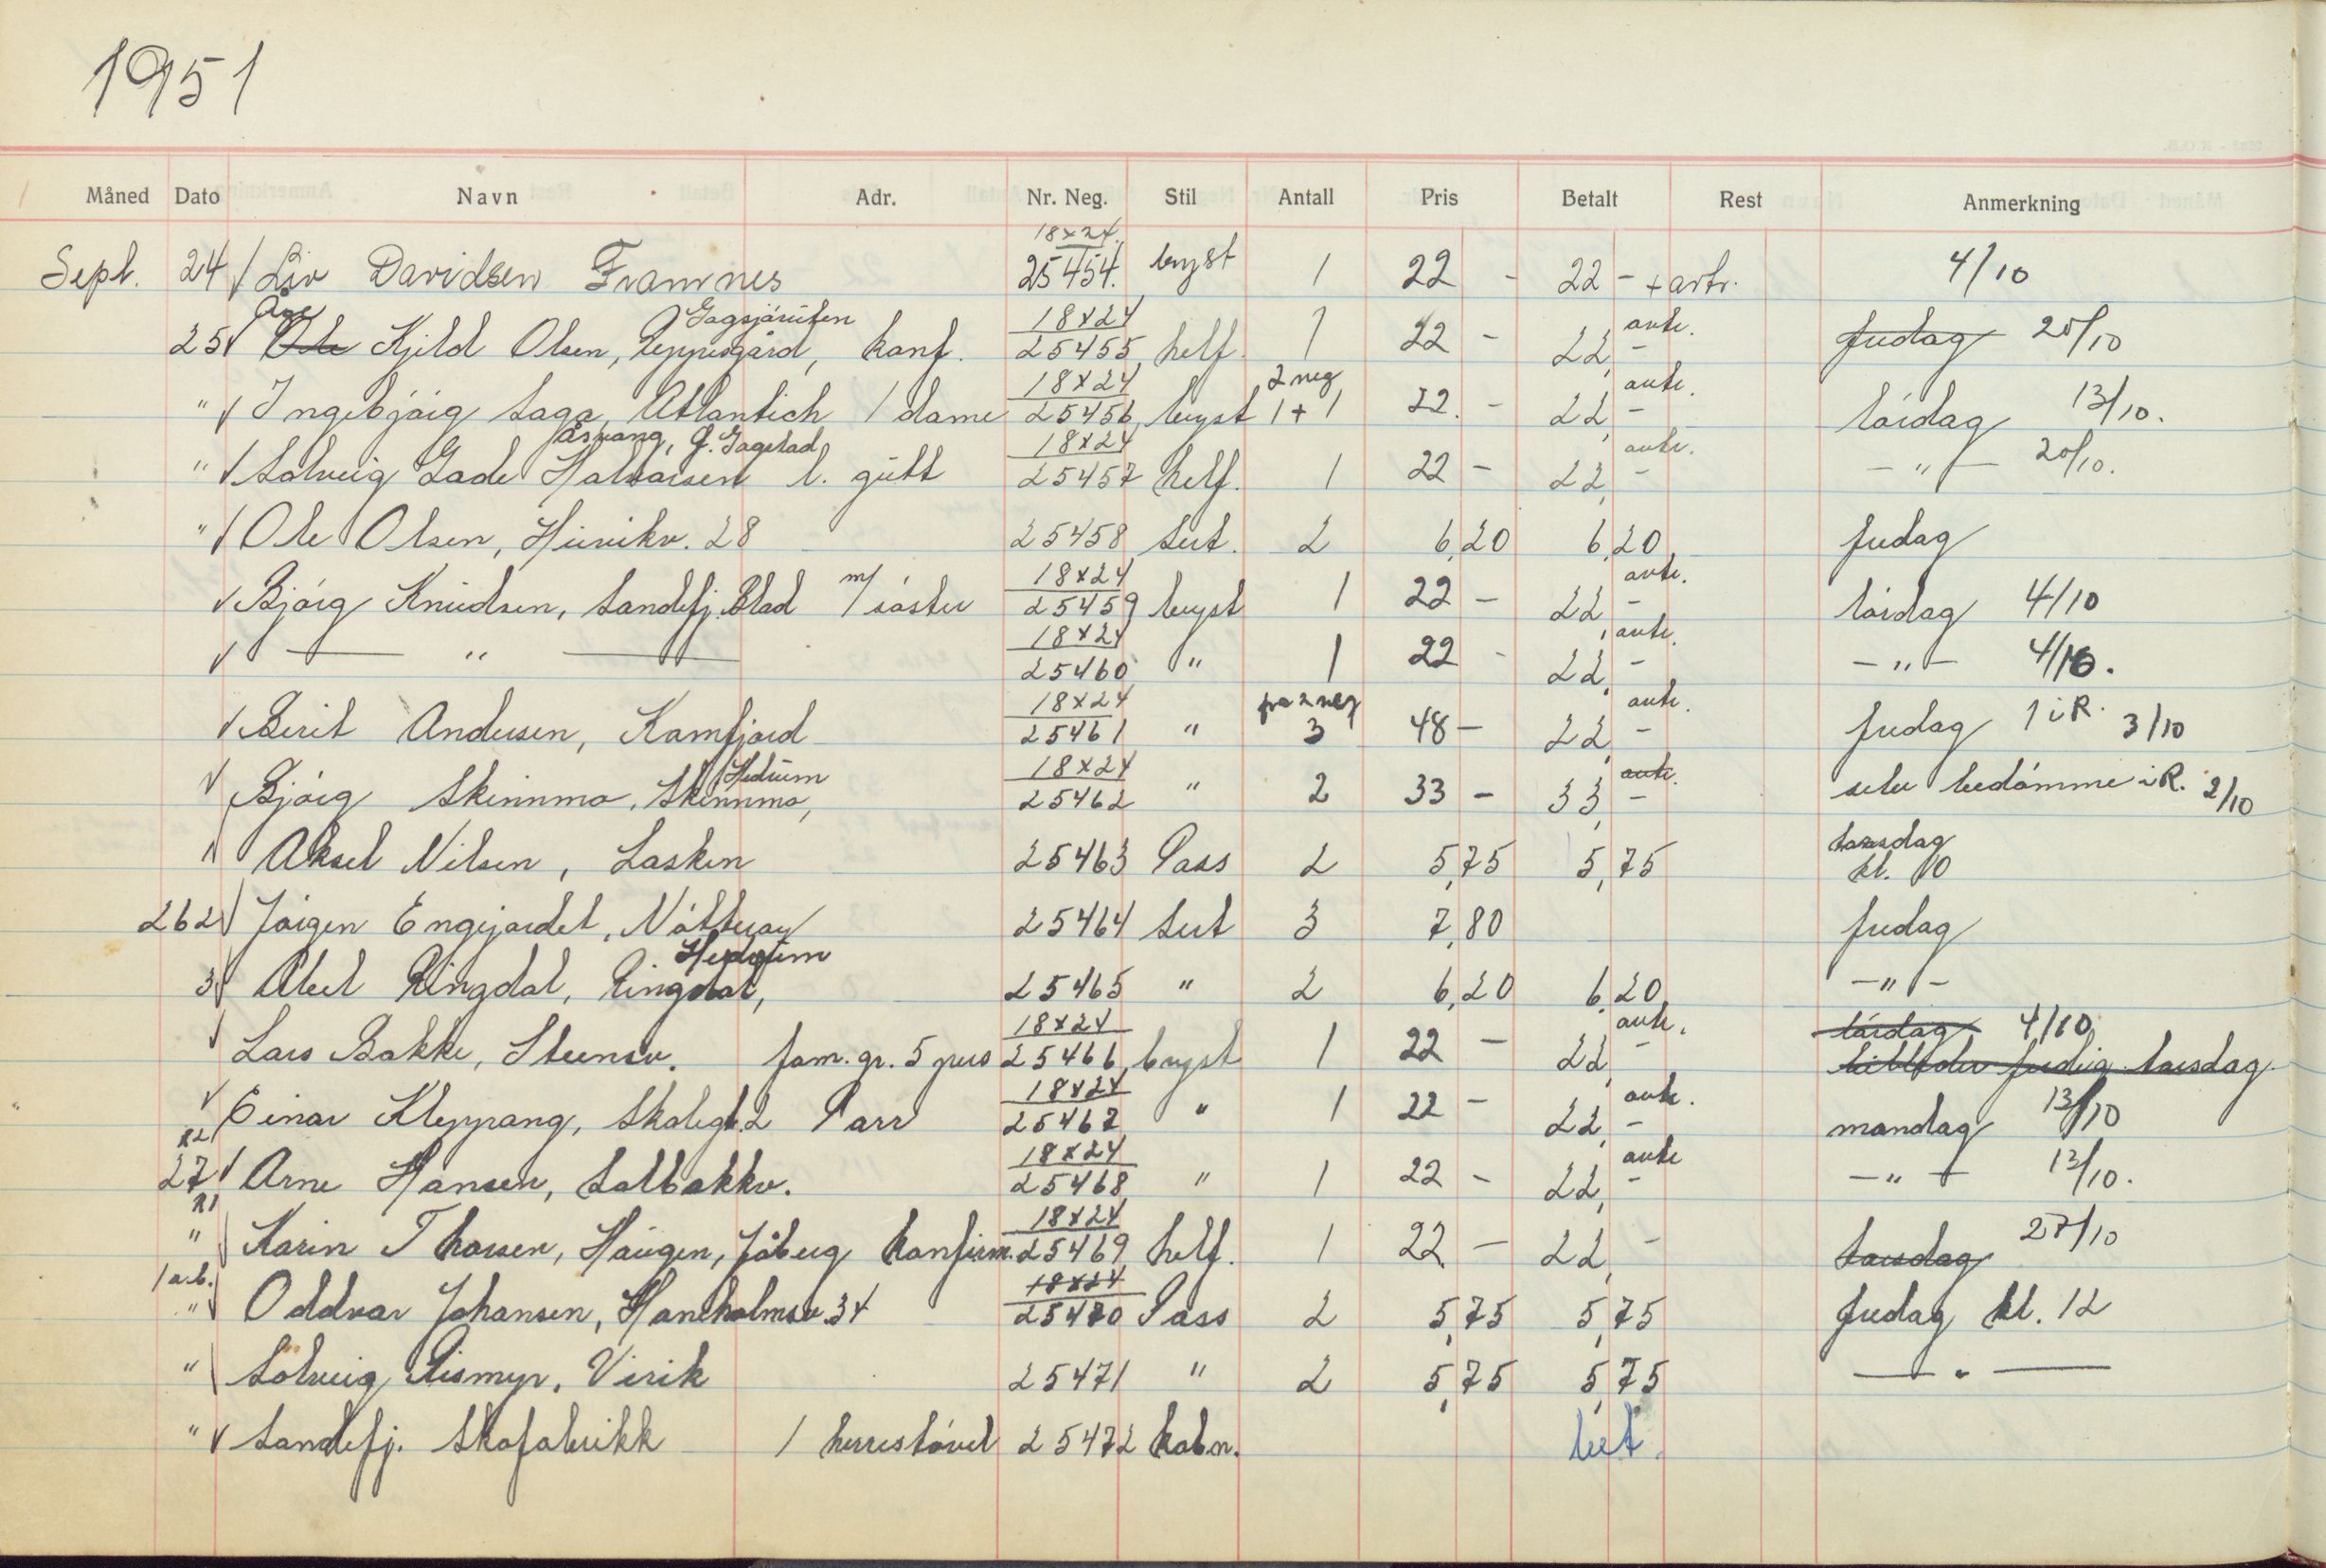 1951
Måned Dato Navn Adr. Nr. Neg. Stil Antall Pris Betalt Rest Anmerkning
18x24
Sept. 24 Liv Davidsen Framnes 25454. bryst 1 22 - 22 - 4/10
Åge 18x24
25 Ole Kjeld Olsen, konf. 25455 helf. 1 22 - 22,- fredag 20/10
18x24 2 neg
" Ingebjørg Saga, Atlantich 1 dame 25456 bryst 1+1 22. - 22,- lørdag 13/10.
Åsvang, 18x24
" Solveig Gade Halvorsen l. gutt 25457 helf. 1 22 - 22,- -"- 20/10.
" Ole Olsen, 28 25458 Sert. 2 6,20 6,20 fredag
m/ 18x24
Bjørg Knudsen, Sandefj. Blad 1 søster 25459 bryst 1 22 - 22,- lørdag 4/10
18x24
" 25460 " 1 22 - 22,- -"- 4/10.
18x24 fra 2 neg
Berit Andersen, Kamfjord 25461 " 3 48 - 22,- fredag 1 i R. 3/10
Hedrum 18x24
Bjørg Skinnmo, Skinnmo, 25462 " 2 33 - 33,- selv bedømme i R. 2/10
Aksel Nilsen, Lasken 25463 Pass 2 5,75 5,75 torsdag
kl. 10
26 2 Jørgen Engejordet, Nøtterøy 25464 Sert 3 7,80 fredag
Hedrum
3 Ringdal, Ringdal, 25465 " 2 6,20 6,20 -"-
18x24 lørdag 4/10
Lars Bakke, fam. gr. 5 pers 25466 bryst 1 22 - 22,- torsdag
18x24
Einar Kleppang, Skolegt. 2 1 par 25467 " 1 22 - 22,- mandag 13/10
R2
18x24
27 Arne Hansen, 25468 " 1 22 - 22,- -"- 13/10.
R1
18x24
" Karin Thorsen, Haugen, Jåberg konfirm. 25469 helf. 1 22 - 22,- torsdag 27/10
18x24
" Oddvar Johansen, 34 25470 Pass 2 5,75 5,75 fredag kl. 12
" Solveig Rismyr, Virik 25471 " 2 5,75 5,75 - " -
" Sandefj. Skofabrikk 1 herrestøvel 25472 bet.